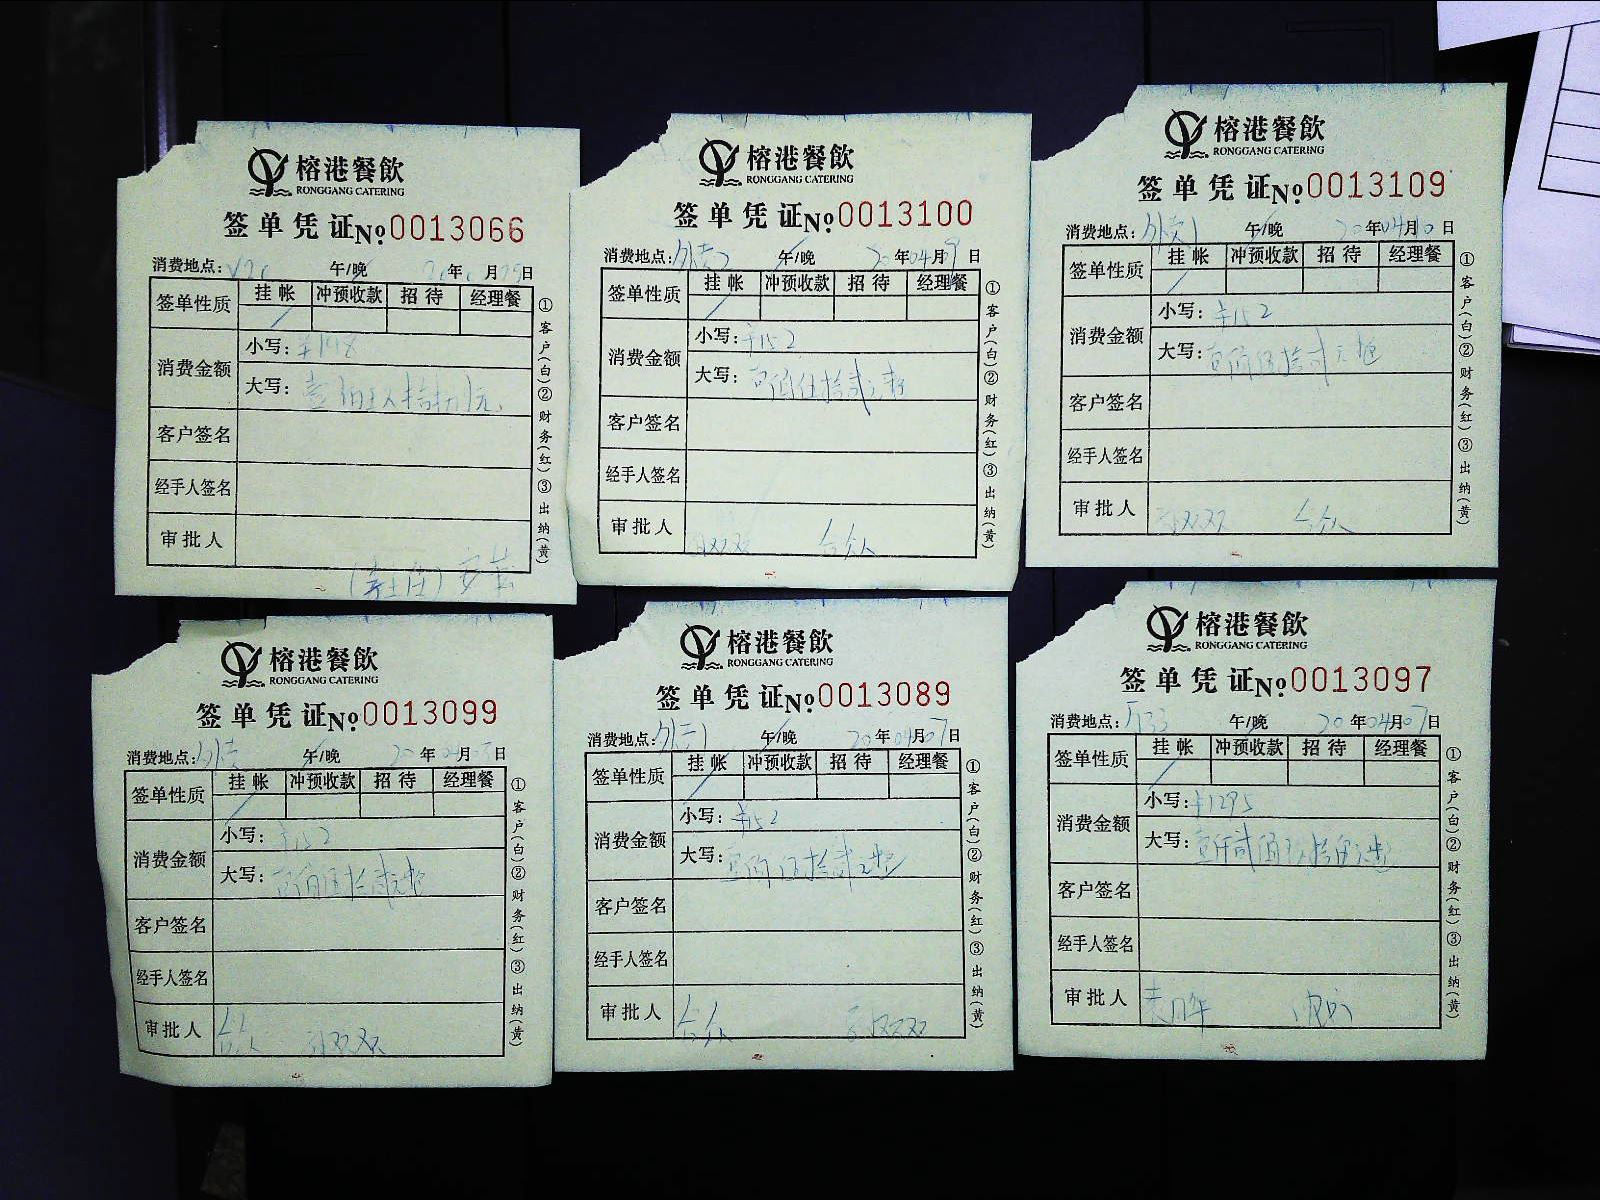 榕港餐飲
RONGGANG CATERING
签单凭证№0013066
消费地点: 午/晚 年 月 日
签单性质 挂帐 冲预收款 招待 经理餐
消费金额 小写:
大写:
客户签名
经手人签名
审批人
①客户(白)②财务(红)③出纳(黄)
榕港餐飲
RONGGANG CATERING
签单凭证№0013100
消费地点:外卖 午/晚 20年04月09日
签单性质 挂帐 冲预收款 招待 经理餐
消费金额 小写:¥152
大写:壹佰伍拾贰元整
客户签名
经手人签名
审批人 双双
①客户(白)②财务(红)③出纳(黄)
榕港餐飲
RONGGANG CATERING
签单凭证№0013109
消费地点:外卖1 午/晚 20年04月10日
签单性质 挂帐 冲预收款 招待 经理餐
消费金额 小写:¥152
大写:壹佰伍拾贰元整
客户签名
经手人签名
审批人 双双
①客户(白)②财务(红)③出纳(黄)
榕港餐飲
RONGGANG CATERING
签单凭证№0013099
消费地点:外卖 午/晚 20年04月 日
签单性质 挂帐 冲预收款 招待 经理餐
消费金额 小写:¥152
大写:壹佰伍拾贰元整
客户签名
经手人签名
审批人 双双
①客户(白)②财务(红)③出纳(黄)
榕港餐飲
RONGGANG CATERING
签单凭证№0013089
消费地点:外卖1 午/晚 20年04月07日
签单性质 挂帐 冲预收款 招待 经理餐
消费金额 小写:¥152
大写:壹佰伍拾贰元整
客户签名
经手人签名
审批人 双双
①客户(白)②财务(红)③出纳(黄)
榕港餐飲
RONGGANG CATERING
签单凭证№0013097
消费地点: 午/晚 20年04月07日
签单性质 挂帐 冲预收款 招待 经理餐
消费金额 小写:¥1295
大写:壹仟贰佰玖拾伍元整
客户签名
经手人签名
审批人
①客户(白)②财务(红)③出纳(黄)